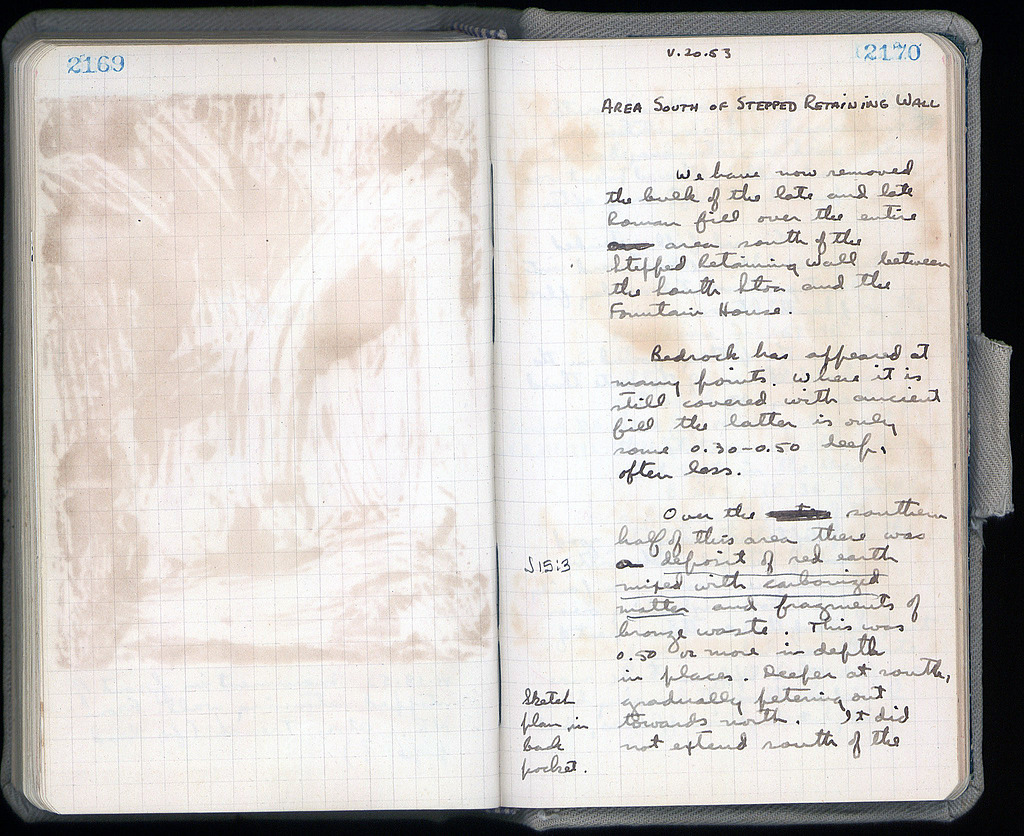 2169
V.20.53
2170
AREA SOUTH OF STEPPED RETAINING WALL
We have now removed
the bulk of the late and late
Roman fill over the entire
area south of the
Stepped Retaining Wall between
the South Stoa and the
Fountain House.
Bedrock has appeared at
many points. Where it is
still covered with ancient
fill the latter is only
some 0.30-0.50 deep,
often less.
Over the southern
half of this area there was
J15:3
a deposit of red earth
mixed with carbonized
matter and fragments of
bronze waste. This was
0.50 or more in depth
in places. Deeper at south,
gradually petering out
towards north. It did
not extend south of the
Sketch
plan in
back
pocket.